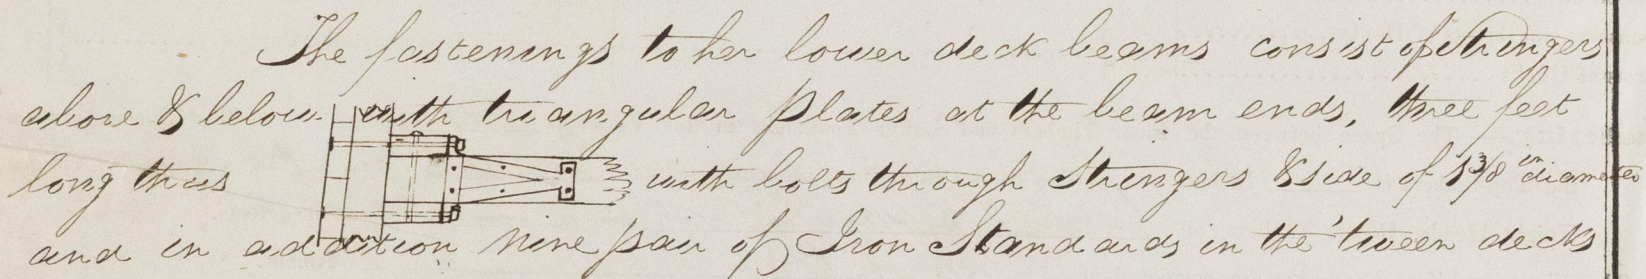 The fastenings to her lower deck beams consist of Stringers
above & below with triangular plates at the beam ends, three feet
long thus with bolts through Stringers & side of 1 3/8 in diameter
and in addition nine pair of Iron Standards in the 'tween decks